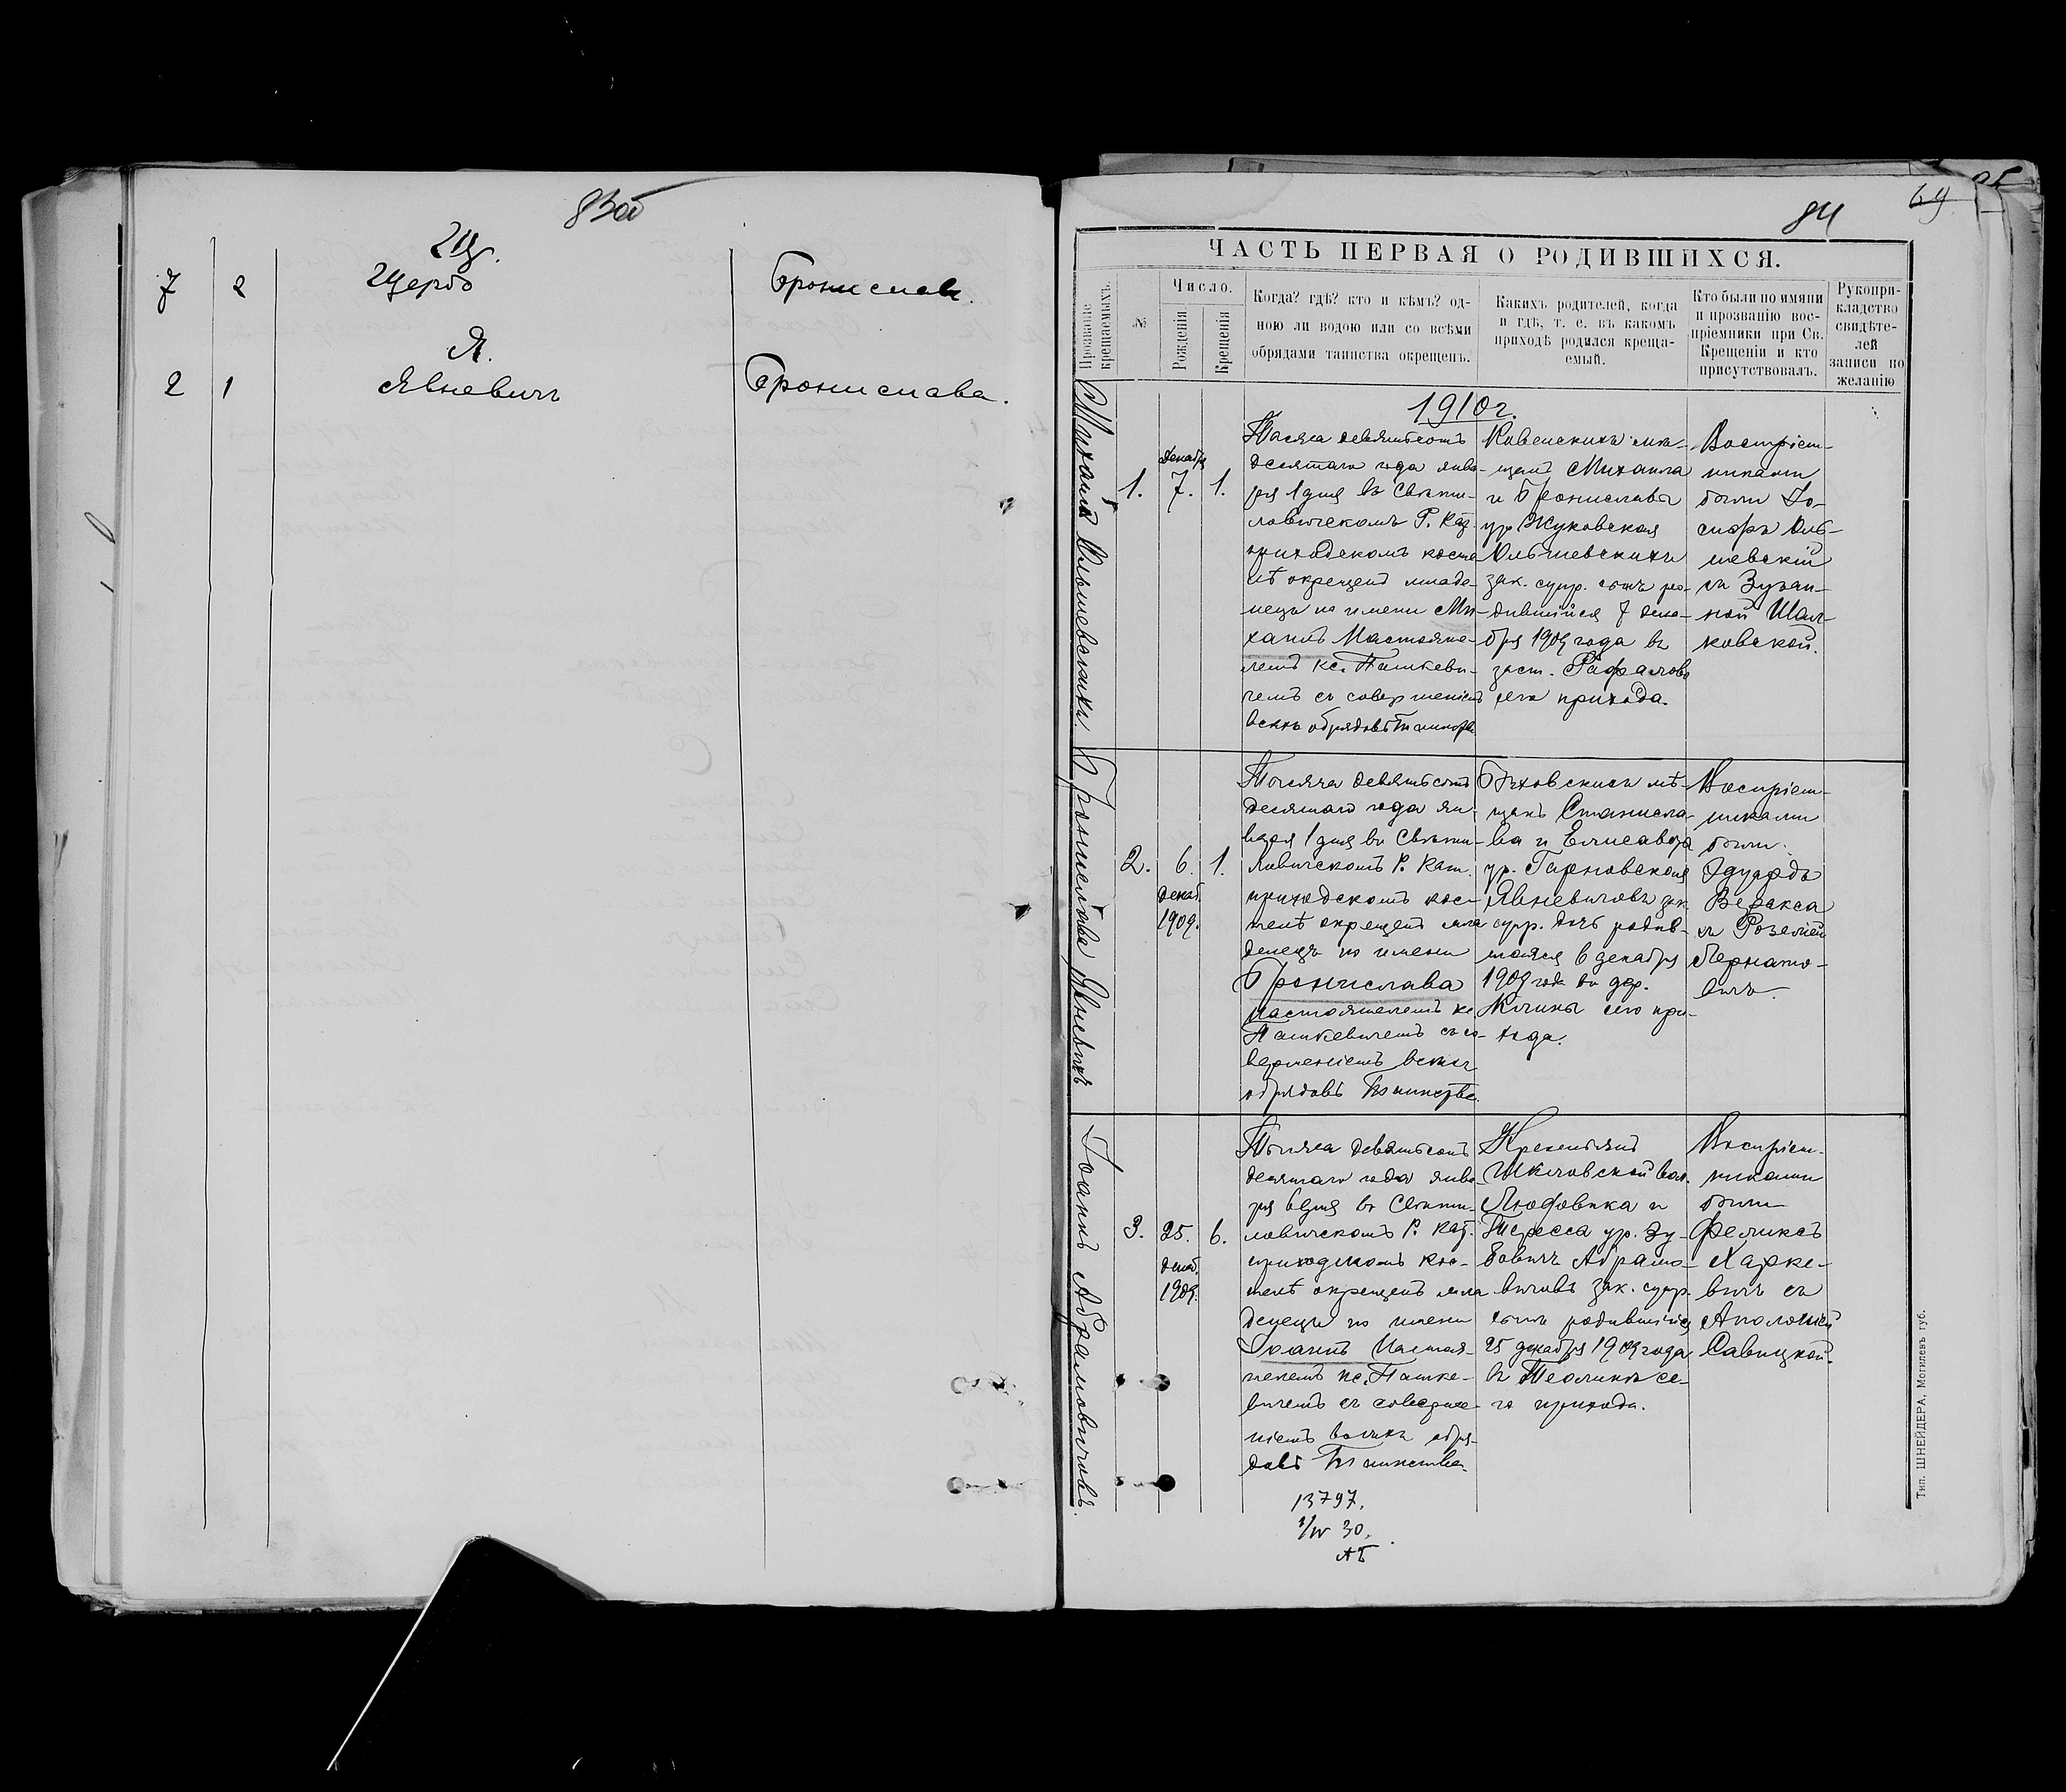 83об
Щ.
7 2 Щербо Брониславъ.
Я.
2 1 Явневичъ Бронислава.
84
69
ЧАСТЬ ПЕРВАЯ О РОДИВШИХСЯ.
Прозваніе крещаемыхъ.
№
Число.
Рожденія
Крещенія
Когда? гдѣ? кто и кѣмъ? од-
ною ли водою или со всѣми
обрядами таинства окрещенъ.
Какихъ родителей, когда
и гдѣ, т. е. въ какомъ
приходѣ родился креща-
емый.
Кто были по имяни
и прозванію вос-
пріемники при Св.
Крещеніи и кто
присутствовалъ.
Рукопри-
кладство
свидѣте-
лей
записи по
желанію
1910г.
Михаилъ Ольшевскихъ.
1.
Декабр
7.
1.
Тысяча девятьсотъ
десятаго года янва-
ря 1 дня въ Святи-
ловичскомъ Р. Кат.
приходскомъ косте
лѣ окрещенъ младе-
нецъ по имени Ми-
хаилъ Настояте-
лемъ кс. Пашкеви-
чемъ съ совершеніемъ
всѣхъ обрядовъ Таинства
Ковенскихъ мѣ-
щанъ Михаила
и Брониславы
ур. Жуковская
Ольшевскихъ
зак. супр. сынъ ро-
дившійся 7 дека-
бря 1909 года въ
заст. Рафалово
сего прихода.
Воспріем-
никами
были Іо-
сифъ Оль-
шевскій
съ Зузан-
ной Шал-
ковской.
Бронислава Явневичъ
2.
6.
декаб.
1909.
1.
Тысяча девятьсотъ
десятаго года ян-
варя 1 дня въ Святи-
ловичскомъ Р. Кат.
приходскомъ кос-
телѣ окрещенъ мла
денецъ по имени
Бронислава
Настоятелемъ кс.
Пашкевичемъ съ со-
вершеніемъ всѣхъ
обрядовъ Таинства.
Быховскихъ мѣ-
щанъ Станисла-
ва и Елисавета
ур. Тарновская
Явневичовъ зак.
супр. дочь родив-
шаяся 6 декабря
1909 года въ дер.
сего при-
хода.
Воспріем-
никами
были
Эдуардъ
Веракса
съ Розеліей
Бернато-
вичъ.
Іоаннъ Абрамовичовъ.
3.
25.
декаб.
1909.
6.
Тысяча девятьсотъ
десятаго года янва-
ря 6 дня въ Святи-
ловичскомъ Р. Кат.
приходскомъ кос-
телѣ окрещенъ мла
денецъ по имени
Іоаннъ Настоя-
телемъ кс. Пашке-
вичемъ съ соверше-
ніемъ всѣхъ обря-
довъ Таинства.
Крестьянъ
Шкловской вол.
Людовика и
Тересса ур. Зу-
бовичъ Абрамо-
вичовъ зак. супр.
сынъ родившійся
25 декабря 1909 года
въ Теолинъ се-
го прихода.
Воспріем-
никами
были
Феликсъ
Харке-
вичъ съ
Аполоніей
Савицкой.
13797.
1/IV 30.
АБ
Тип. ШНЕЙДЕРА, Могилевъ губ.